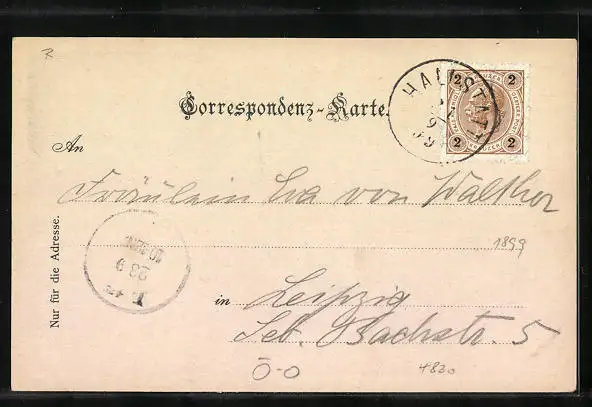 R
2 2
HALLSTATT
Correspondenz-Karte.
2 2
KREUZER
An
Fräulein Eva von Walther
1899
Nur für die Adresse.
28 9
in Leipzig
Seb. Bachstr. 5
Ö-O
4830